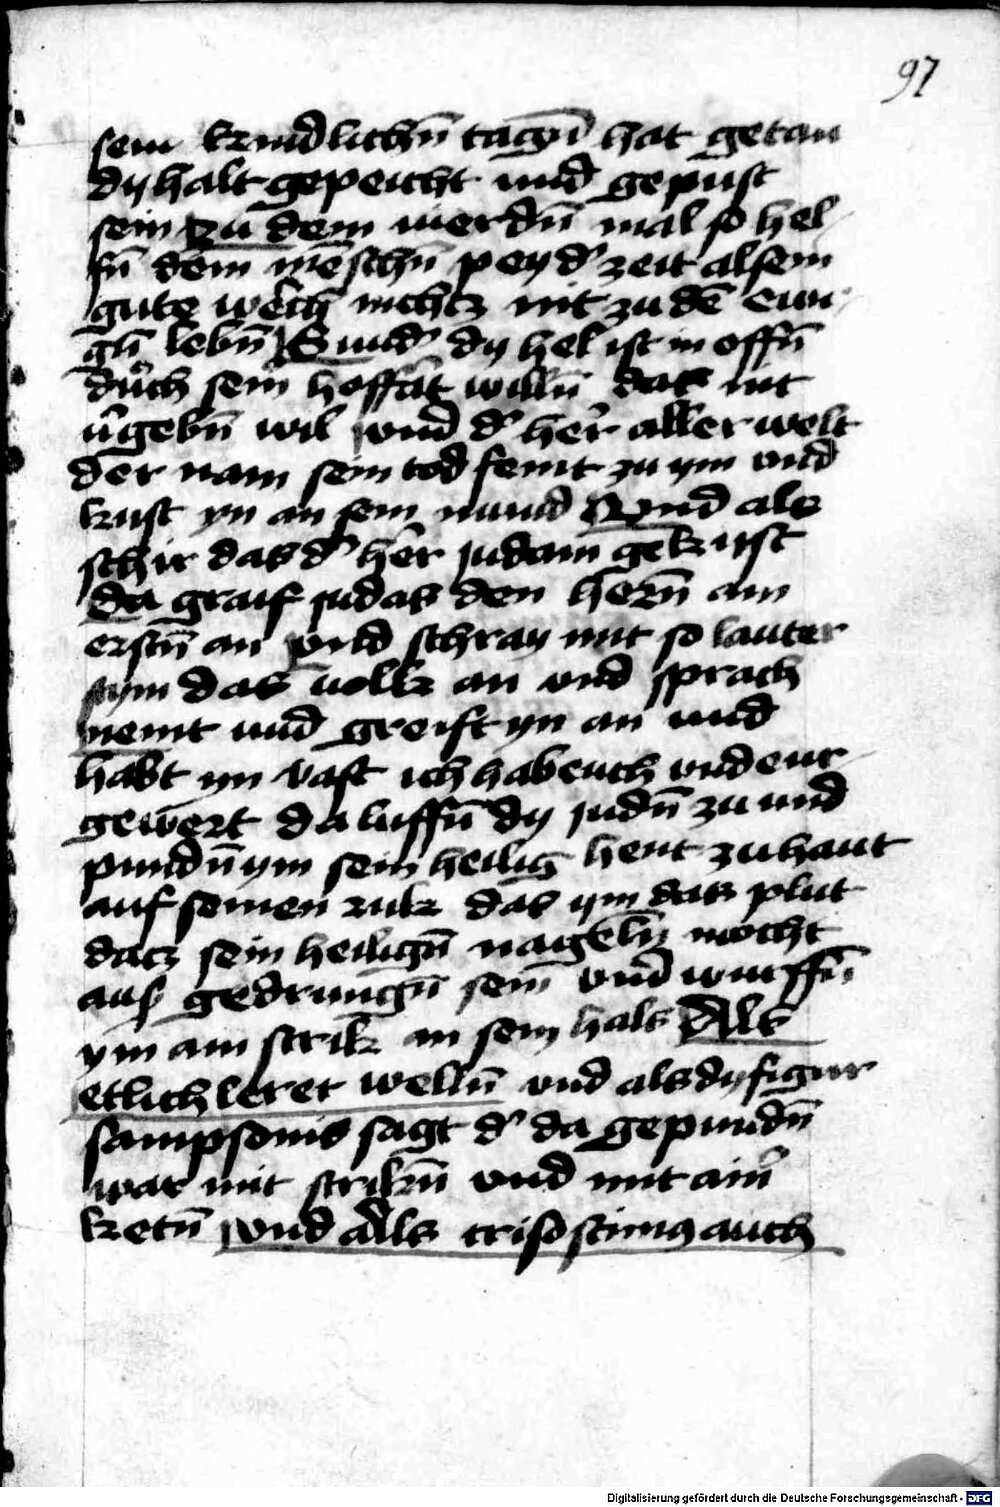 97
sein kindlichn̄ tagn̄ hat getan
dy halt gepeicht und gepust
sein zu dem vierdn̄ mal so hel
fn̄ dem mēschn̄ pey d' zeit all sein
gute werch nichtz nit zu dē ewi
gn̄ lebn̄ Sund' dy hel ist in offn̄
durch sein hoffart willn̄ das nit
v'gebn̄ wil und d' her aller welt
der nam sein tod feint zu ym und
kust yn an sein mund Und als
schir das d' her judam gekust
da graif judas den hern̄ am
erstn̄ an und schray mit so lauter
stym das volk an und sprach
nemt und greift yn an und
habt yn vast ich hab euch und eur
gewert da luffn̄ dy judn̄ zu und
pundn̄ ym sein heilig hent zu haut
auf seinen ruk das ym das plut
datz sein heilign̄ nageln̄ mocht
aus gedrungn̄ sein und wurffn̄
ym ain strik an sein hals Als
etlich leret welln̄ und als dy figur
sampsonis sagt d' da gepundn̄
war mit strikn̄ und mit ain'
ketn̄ und als crisostimus auch
Digitalisierung gefördert durch die Deutsche Forschungsgemeinschaft - DFG